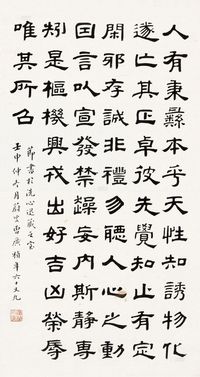 人有秉彝本乎天性知誘物化
遂亡其正卓彼先覺知止有定
閑邪存誠非禮勿聽人心之動
因言以宣發禁躁妄內斯靜專
矧是樞機興戎出好吉凶榮辱
唯其所召
節書於洗心退藏之室
壬申仲冬月蔚叟曹廣楨年六十又九